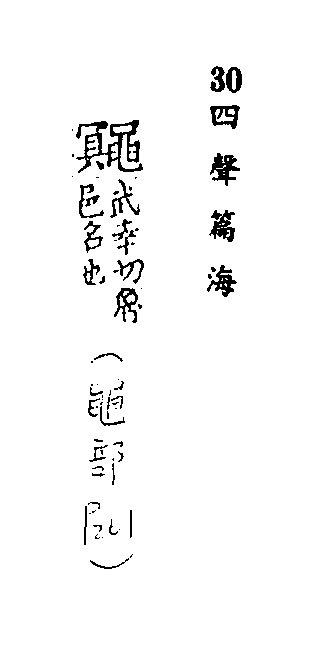 30 四聲篇海
鼆 武幸切魯
邑名也
(黽部 )